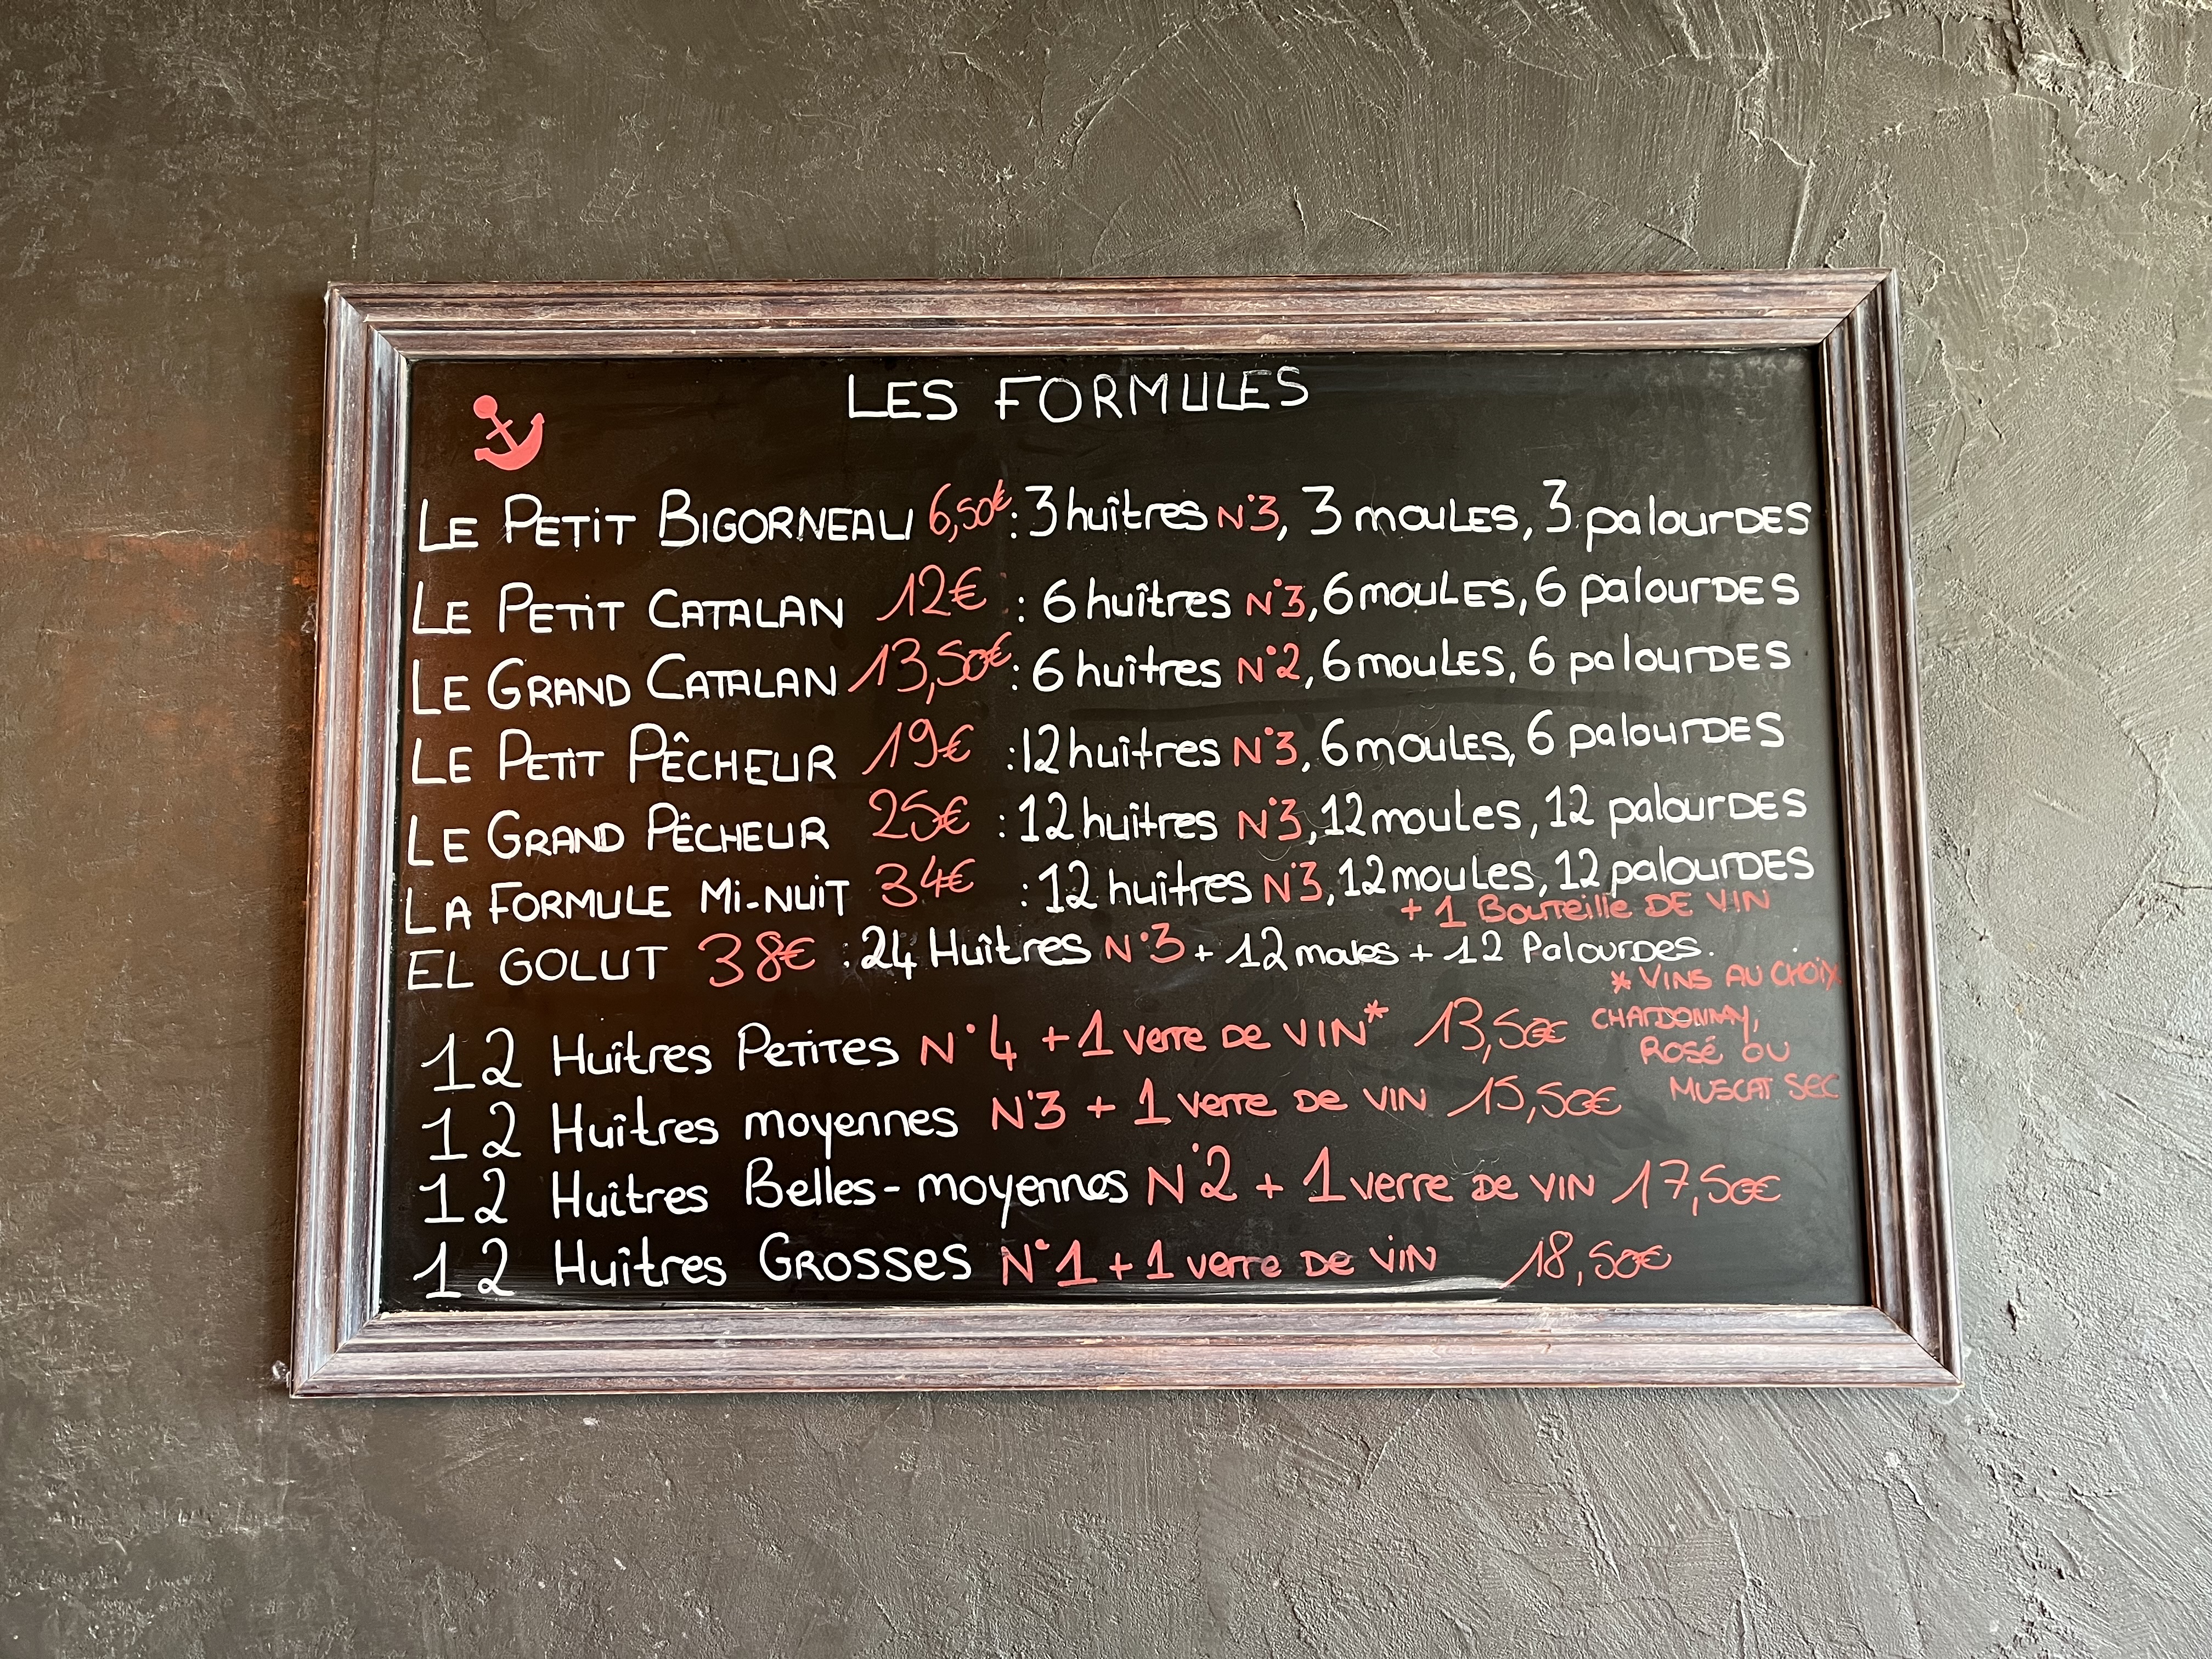 LES FORMULES
LE PETIT BIGORNEAU 6,50€ : 3 huîtres N°3, 3 moULES, 3 palourDES
LE PETIT CATALAN 12€ : 6 huîtres N°3, 6 moULES, 6 palourDES
LE GRAND CATALAN 13,50€ : 6 huîtres N°2, 6 moULES, 6 palourDES
LE PETIT PÊCHEUR 19€ : 12 huîtres N°3, 6 moULES, 6 palourDES
LE GRAND PÊCHEUR 25€ : 12 huîtres N°3, 12 mouLes, 12 palourDES
LA FORMULE Mi-NUIT 34€ : 12 huîtres N°3, 12 mouLes, 12 palourDES
+ 1 BouTeille DE VIN
EL GOLUT 38€ : 24 Huîtres N°3 + 12 moules + 12 PalourDes.
* VINS AU CHOIX
CHARDONNAY,
ROSÉ OU
MUSCAT SEC
12 Huîtres PETITES N°4 + 1 verre DE VIN* 13,50€
12 Huîtres moyennes N°3 + 1 verre DE VIN 15,50€
12 Huîtres Belles-moyennes N°2 + 1 verre DE VIN 17,50€
12 Huîtres GROSSES N°1 + 1 verre DE VIN 18,50€